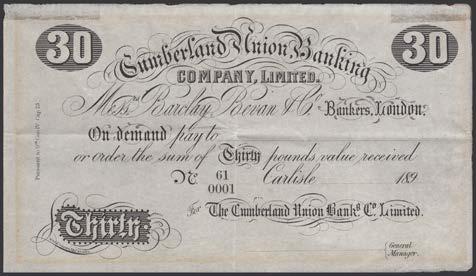 30 30
Cumberland Union Banking
COMPANY, LIMITED.
Messrs Barclay, Bevan & Co
Bankers, London.
On demand pay to
or order the sum of Thirty pounds value received
No 61
0001 Carlisle 189
For The Cumberland Union Bankg Co Limited.
Thirty
General
Manager.